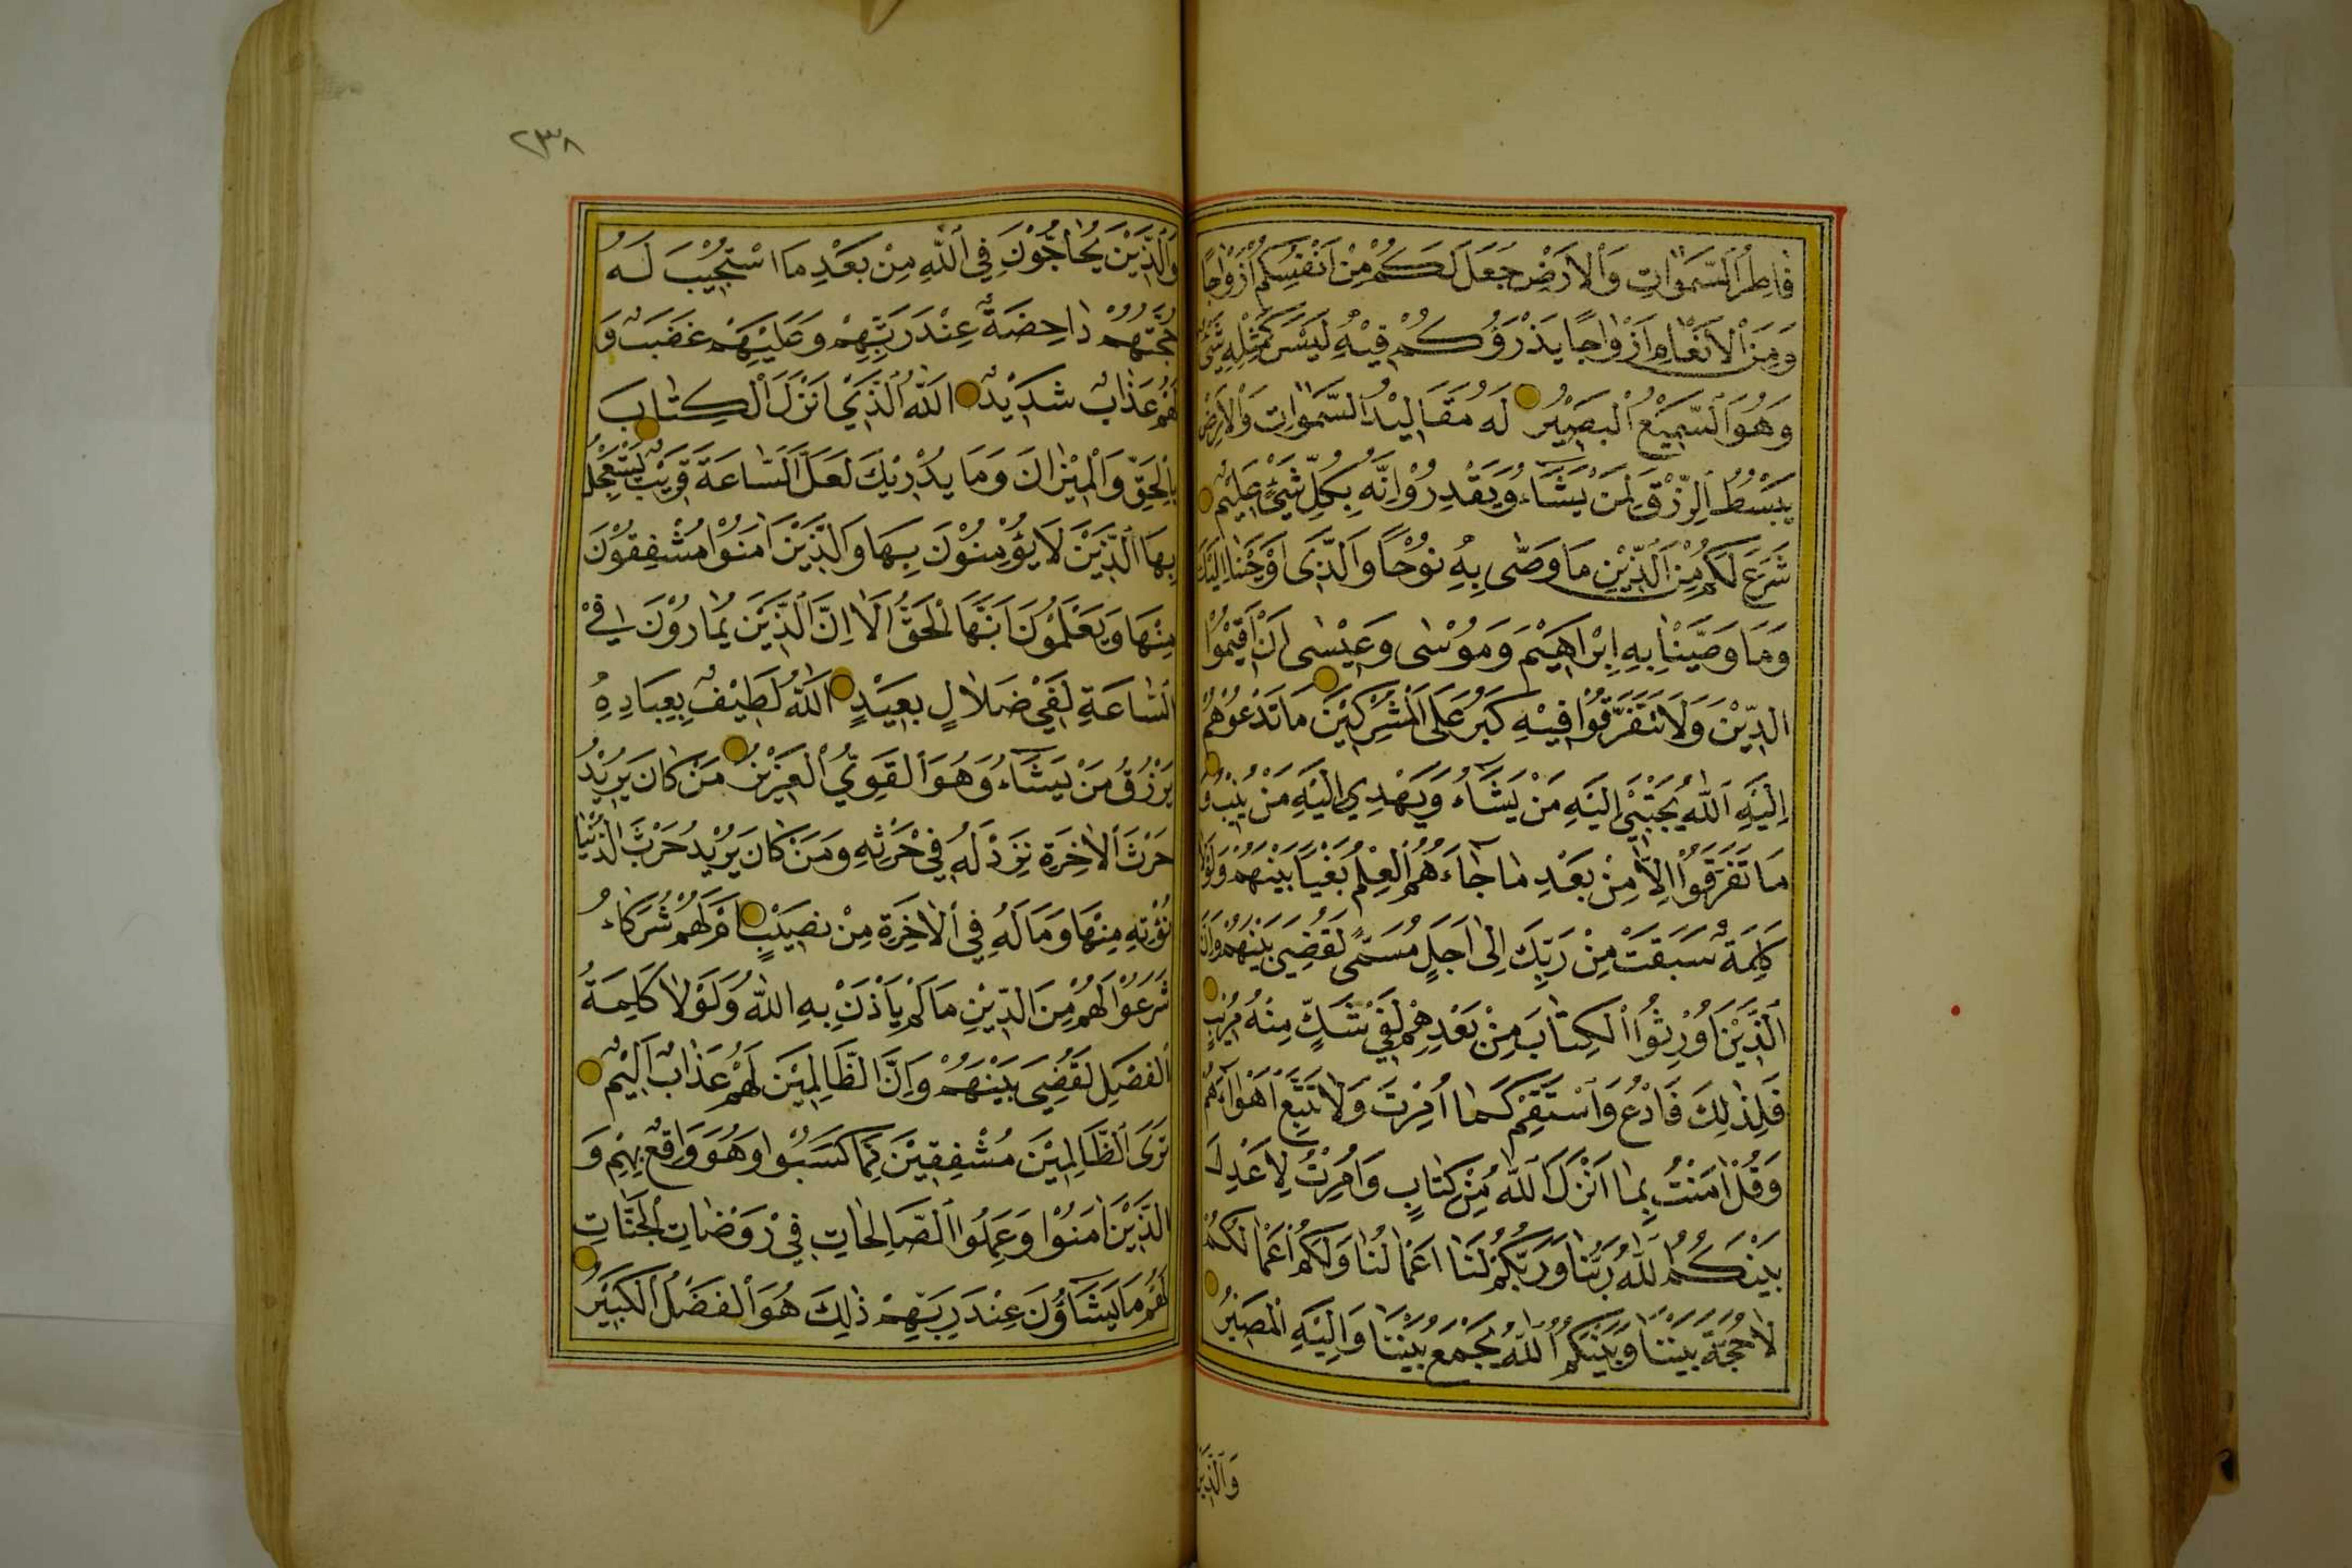 فَاطِرُ السَّمٰوَاتِ وَالْاَرْضِ جَعَلَ لَكُمْ مِنْ اَنْفُسِكُمْ اَزْوَاجًا
وَمِنَ الْاَنْعَامِ اَزْوَاجًا يَذْرَؤُكُمْ فِيْهِ لَيْسَ كَمِثْلِهِ شَيْءٌ
وَهُوَ السَّمِيْعُ الْبَصِيْرُ لَهُ مَقَالِيْدُ السَّمٰوَاتِ وَالْاَرْضِ
يَبْسُطُ الرِّزْقَ لِمَنْ يَشَاءُ وَيَقْدِرُ اِنَّهُ بِكُلِّ شَيْءٍ عَلِيْمٌ
شَرَعَ لَكُمْ مِنَ الدِّيْنِ مَا وَصّٰى بِهِ نُوْحًا وَالَّذِيْ اَوْحَيْنَا اِلَيْكَ
وَمَا وَصَّيْنَا بِهِ اِبْرَاهِيْمَ وَمُوْسٰى وَعِيْسٰى اَنْ اَقِيْمُوا
الدِّيْنَ وَلَا تَتَفَرَّقُوْا فِيْهِ كَبُرَ عَلَى الْمُشْرِكِيْنَ مَا تَدْعُوْهُمْ
اِلَيْهِ اَللّٰهُ يَجْتَبِيْ اِلَيْهِ مَنْ يَشَاءُ وَيَهْدِيْ اِلَيْهِ مَنْ يُنِيْبُ وَ
مَا تَفَرَّقُوْا اِلَّا مِنْ بَعْدِ مَا جَاءَهُمُ الْعِلْمُ بَغْيًا بَيْنَهُمْ وَلَوْلَا
كَلِمَةٌ سَبَقَتْ مِنْ رَبِّكَ اِلٰى اَجَلٍ مُسَمًّى لَقُضِيَ بَيْنَهُمْ وَاِنَّ
الَّذِيْنَ اُوْرِثُوا الْكِتَابَ مِنْ بَعْدِهِمْ لَفِيْ شَكٍّ مِنْهُ مُرِيْبٍ
فَلِذٰلِكَ فَادْعُ وَاسْتَقِمْ كَمَا اُمِرْتَ وَلَا تَتَّبِعْ اَهْوَاءَهُمْ
وَقُلْ اٰمَنْتُ بِمَا اَنْزَلَ اللّٰهُ مِنْ كِتَابٍ وَاُمِرْتُ لِاَعْدِلَ
بَيْنَكُمْ اَللّٰهُ رَبُّنَا وَرَبُّكُمْ لَنَا اَعْمَالُنَا وَلَكُمْ اَعْمَالُكُمْ
لَا حُجَّةَ بَيْنَنَا وَبَيْنَكُمْ اَللّٰهُ يَجْمَعُ بَيْنَنَا وَاِلَيْهِ الْمَصِيْرُ
وَالَّذِيْنَ
٢٣٨
وَالَّذِيْنَ يُحَاجُّوْنَ فِي اللّٰهِ مِنْ بَعْدِ مَا اسْتُجِيْبَ لَهُ
حُجَّتُهُمْ دَاحِضَةٌ عِنْدَ رَبِّهِمْ وَعَلَيْهِمْ غَضَبٌ وَ
لَهُمْ عَذَابٌ شَدِيْدٌ اَللّٰهُ الَّذِيْ اَنْزَلَ الْكِتَابَ
بِالْحَقِّ وَالْمِيْزَانَ وَمَا يُدْرِيْكَ لَعَلَّ السَّاعَةَ قَرِيْبٌ يَسْتَعْجِلُ
بِهَا الَّذِيْنَ لَا يُؤْمِنُوْنَ بِهَا وَالَّذِيْنَ اٰمَنُوْا مُشْفِقُوْنَ
مِنْهَا وَيَعْلَمُوْنَ اَنَّهَا الْحَقُّ اَلَا اِنَّ الَّذِيْنَ يُمَارُوْنَ فِيْ
السَّاعَةِ لَفِيْ ضَلَالٍ بَعِيْدٍ اَللّٰهُ لَطِيْفٌ بِعِبَادِهِ
يَرْزُقُ مَنْ يَشَاءُ وَهُوَ الْقَوِيُّ الْعَزِيْزُ مَنْ كَانَ يُرِيْدُ
حَرْثَ الْاٰخِرَةِ نَزِدْ لَهُ فِيْ حَرْثِهِ وَمَنْ كَانَ يُرِيْدُ حَرْثَ الدُّنْيَا
نُؤْتِهِ مِنْهَا وَمَا لَهُ فِي الْاٰخِرَةِ مِنْ نَصِيْبٍ اَمْ لَهُمْ شُرَكَاءُ
شَرَعُوْا لَهُمْ مِنَ الدِّيْنِ مَا لَمْ يَأْذَنْ بِهِ اللّٰهُ وَلَوْلَا كَلِمَةُ
الْفَصْلِ لَقُضِيَ بَيْنَهُمْ وَاِنَّ الظَّالِمِيْنَ لَهُمْ عَذَابٌ اَلِيْمٌ
تَرَى الظَّالِمِيْنَ مُشْفِقِيْنَ مِمَّا كَسَبُوْا وَهُوَ وَاقِعٌ بِهِمْ وَ
الَّذِيْنَ اٰمَنُوْا وَعَمِلُوا الصَّالِحَاتِ فِيْ رَوْضَاتِ الْجَنَّاتِ
لَهُمْ مَا يَشَاؤُنَ عِنْدَ رَبِّهِمْ ذٰلِكَ هُوَ الْفَضْلُ الْكَبِيْرُ